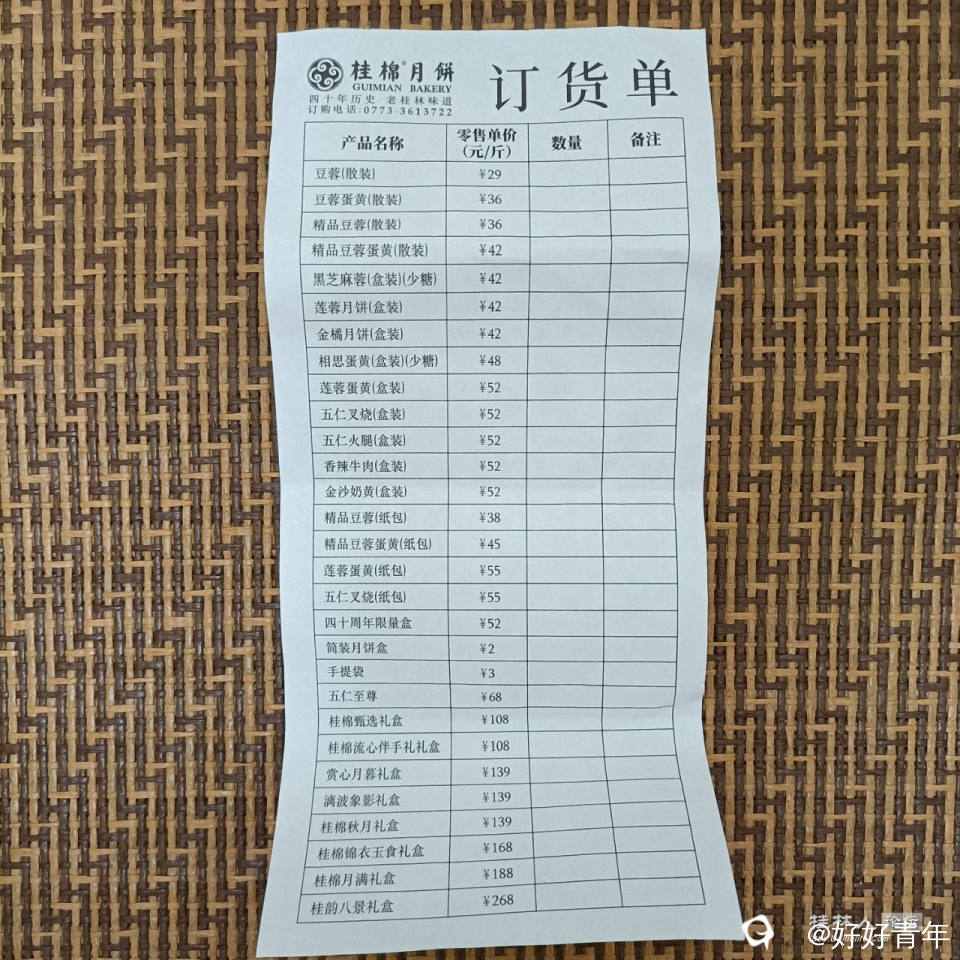 桂棉®月餅
GUIMIAN BAKERY
四十年历史 老桂林味道
订购电话:0773-3613722
订货单
产品名称 零售单价(元/斤) 数量 备注
豆蓉(散装) ¥29
豆蓉蛋黄(散装) ¥36
精品豆蓉(散装) ¥36
精品豆蓉蛋黄(散装) ¥42
黑芝麻蓉(盒装)(少糖) ¥42
莲蓉月饼(盒装) ¥42
金橘月饼(盒装) ¥42
相思蛋黄(盒装)(少糖) ¥48
莲蓉蛋黄(盒装) ¥52
五仁叉烧(盒装) ¥52
五仁火腿(盒装) ¥52
香辣牛肉(盒装) ¥52
金沙奶黄(盒装) ¥52
精品豆蓉(纸包) ¥38
精品豆蓉蛋黄(纸包) ¥45
莲蓉蛋黄(纸包) ¥55
五仁叉烧(纸包) ¥55
四十周年限量盒 ¥52
简装月饼盒 ¥2
手提袋 ¥3
五仁至尊 ¥68
桂棉甄选礼盒 ¥108
桂棉流心伴手礼礼盒 ¥108
赏心月暮礼盒 ¥139
漓波象影礼盒 ¥139
桂棉秋月礼盒 ¥139
桂棉锦衣玉食礼盒 ¥168
桂棉月满礼盒 ¥188
桂韵八景礼盒 ¥268
桂林人论坛
@好好青年